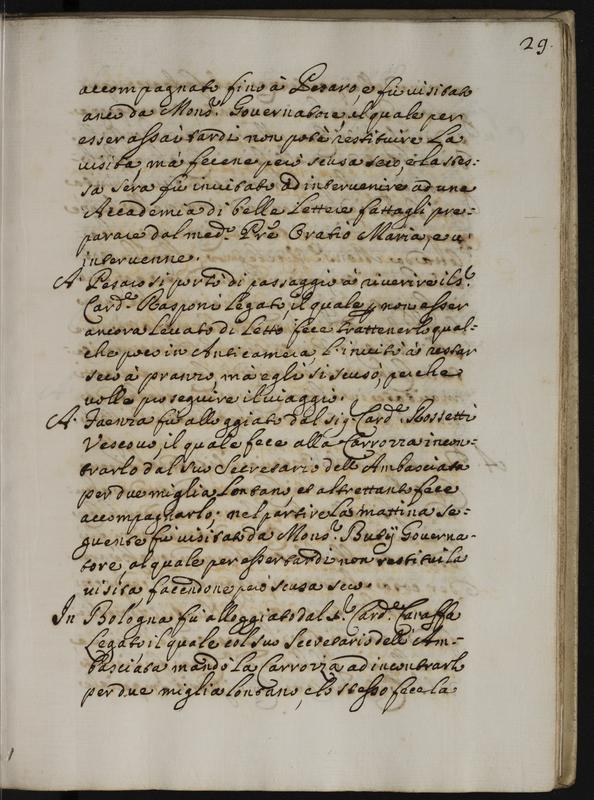 29.
accompagnato fino à Pesaro, e fù visitato
anco da Mons.r Governatore, il quale per
esser assai tardi non potè restituire la
visita, mà fecene però scusa seco, e la stes:
sa sera fù invitato ad intervenire ad una
Accademia di belle Lettere fattagli pre:
parare dal med.o P.re Oratio Maria, e v'
intervenne.
A Pesaro si portò di passaggio à riverire il S.r
Card.e Rasponi Legato, il quale p non esser
ancora levato di Letto fece trattenerlo qual:
che poco in Anticamera, l'invitò à restar
seco à pranzo, mà egli si scusò, perche
volle proseguire il viaggio.
A Faenza fù alloggiato dal sig.r Card.e Rossetti
Vescovo, il quale fece alla Carrozza incon:
trarlo dal suo Secretario dell'Ambasciata
per due miglia lontano, et altrettanto fece
accompagnarlo; nel partire la mattina se:
guente fù visitato da Mons.r Buty Governa:
tore, al quale per esser tardi non restituì la
visita facendone però scusa seco.
In Bologna fù alloggiato dal S.r Card.e Caraffa
Legato, il quale col suo Secretario dell'Am:
basciata mandò la Carrozza ad incontrarlo
per due miglia lontano, e lo stesso fece la